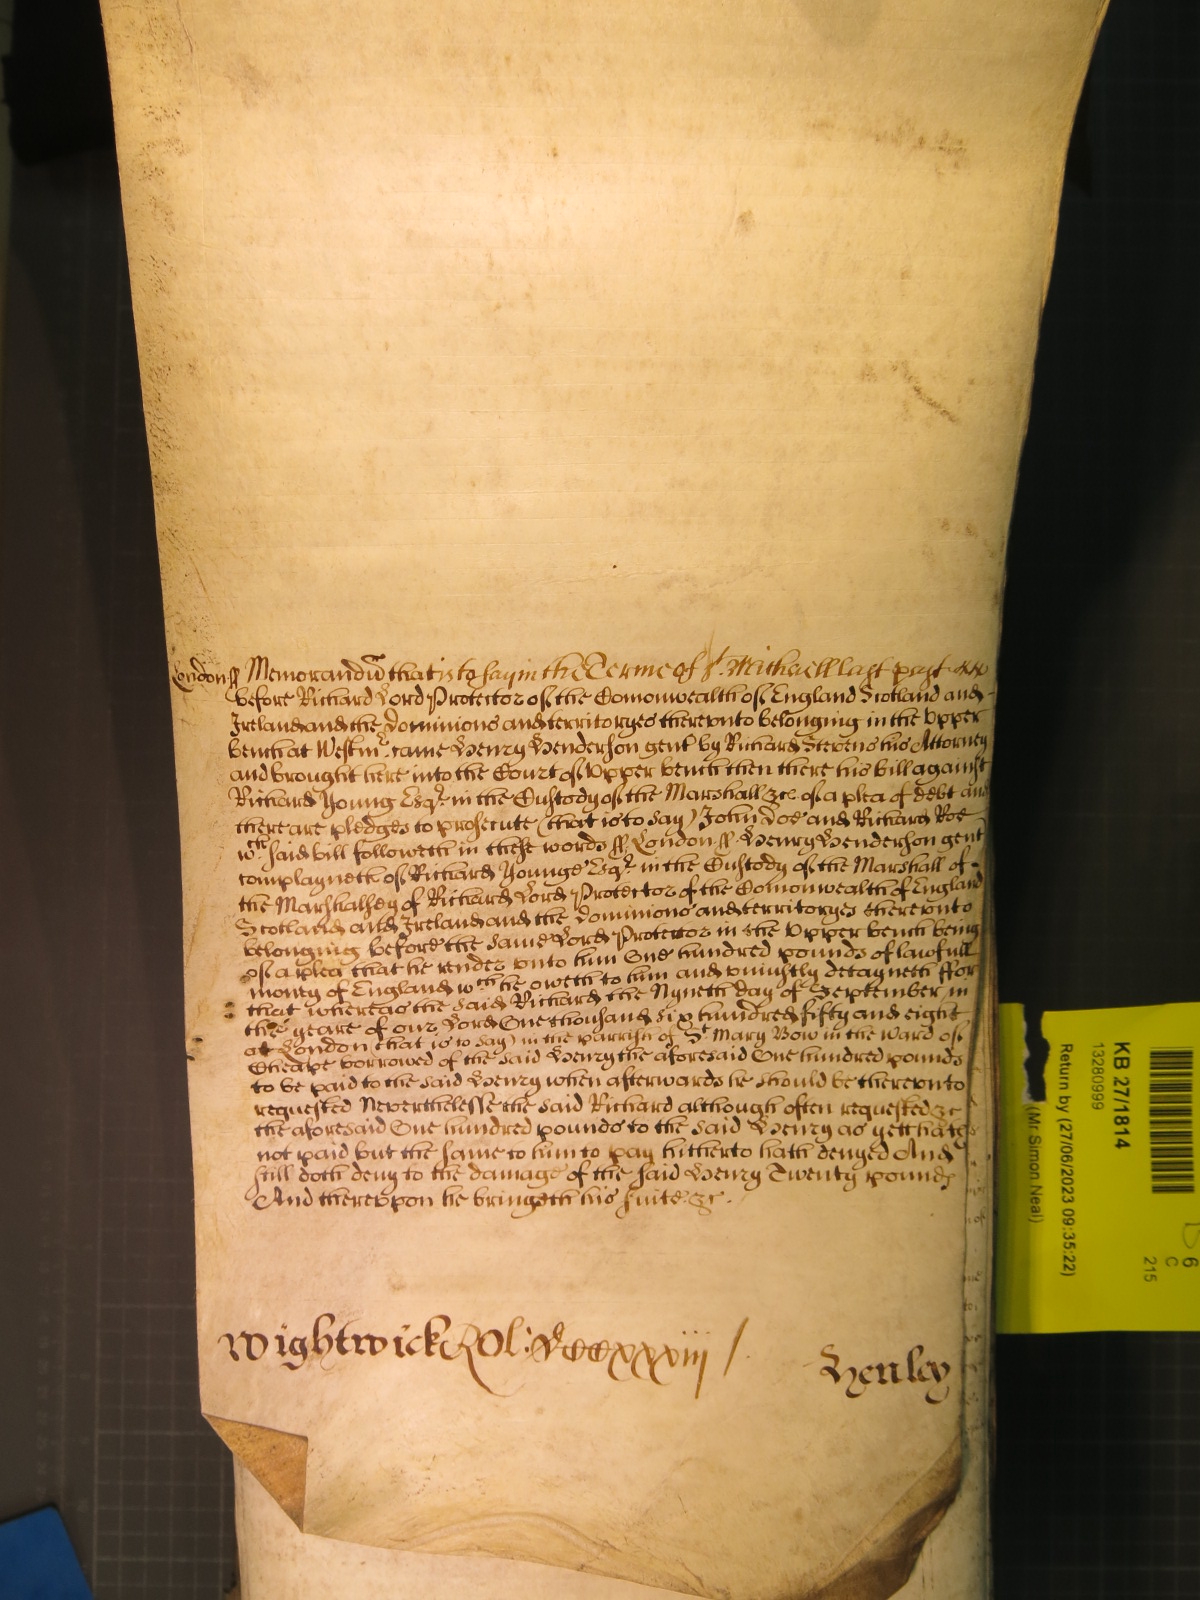 London ss Memorandu that is to say in the Terme of St. Michaell last past
before Richard Lord Protector of the Comonwealth of England Scotland and
Ireland and the dominions and territoryes therevnto belonging in the vpper
bench at Westmr came Henry Henderson gent by Richard Stevens his Attorney
and brought here into the Court of vpper bench then there his bill against
Richard Young Esqr. in the Custody of the Marshall &c of a plea of debt and
there are pledges to prosecute (that is to say) John Doe and Richard Roe
wch said bill followeth in these words ss London ss Henry Henderson gent
complayneth of Richard Younge Esqr. in the Custody of the Marshall of
the Marshalsey of Richard Lord Protector of the Comonwealth of England
Scotland and Ireland and the dominions and territoryes therevnto
belonging before the same Lord Protector in the vpper bench being
of a plea that he render vnto him One hundred pounds of lawfull
money of England wch he oweth to him and vniustly detayneth ffor
that whereas the said Richard the Nyneth day of September in
the yeare of our Lord One thousand six hundred fifty and eight
at London (that is to say) in the parrish of St Mary Bow in the ward of
Cheape borrowed of the said Henry the aforesaid One hundred pounds
to be paid to the said Henry when afterwards he should be therevnto
requested Neverthelesse the said Richard although often requested &c
the aforesaid One hundred pounds to the said Henry as yett hath
not paid but the same to him to pay hitherto hath denyed And
still doth deny to the damage of the said Henry Twenty pounds
And therevpon he bringeth his suite &c.
Wightwick Rol: xxxiii
Henley
KB 27/1814
13280999
Return by (27/06/2023 09:35:22)
(Mr Simon Neal)
6
C
215